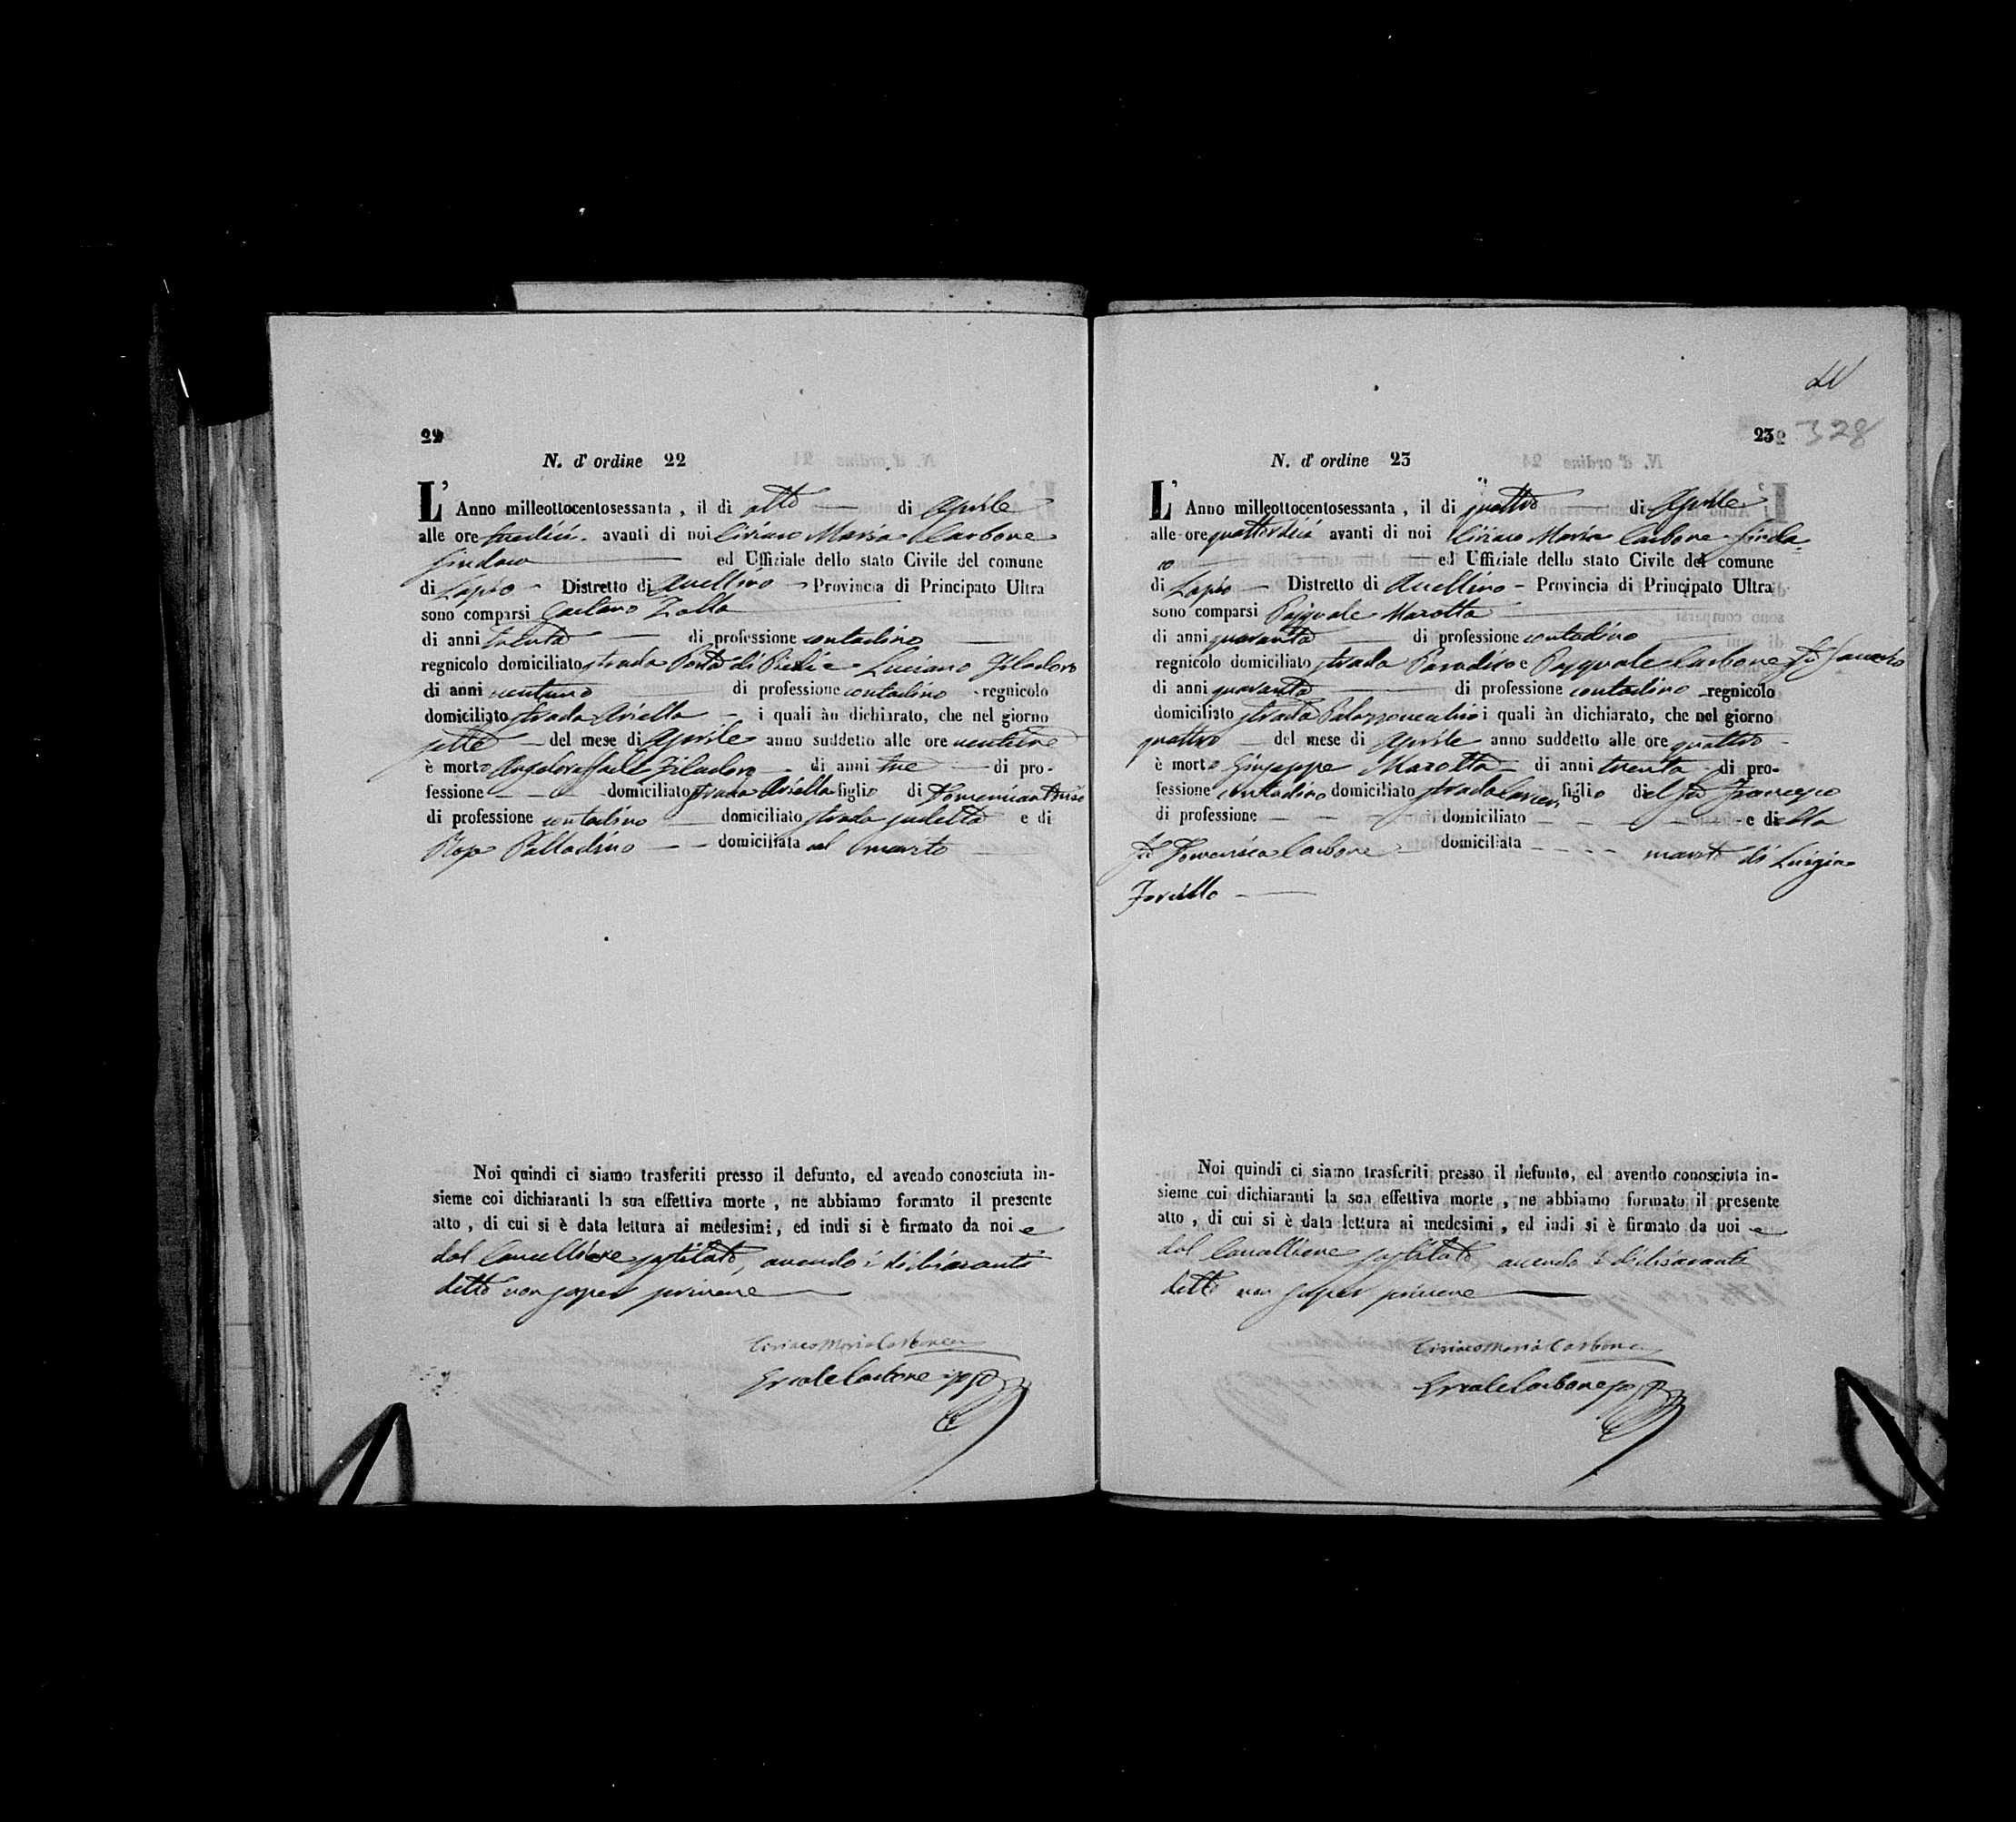 22
N. d' ordine 22
L' Anno milleottocentosessanta, il dì otto di Aprile
alle ore avanti di noi Ciriaco Maria Carbone
Sindaco ed Uffiziale dello stato Civile del comune
di Lapio Distretto di Avellino Provincia di Principato Ultra
sono comparsi Gaetano Zolla
di anni trenta di professione contadino
regnicolo domiciliato strada Porta di Piedi e Luciano Filadoro
di anni ventuno di professione contadino regnicolo
domiciliato strada Ariella i quali àn dichiarato, che nel giorno
sette del mese di Aprile anno suddetto alle ore ventitre
è morto Angeloraffaele Filadoro di anni tre di pro-
fessione domiciliato strada Ariella figlio di
di professione contadino domiciliato strada suddetta e di
Rosa Palladino domiciliata col marito
Noi quindi ci siamo trasferiti presso il defunto, ed avendo conosciuta in-
sieme coi dichiaranti la sua effettiva morte, ne abbiamo formato il presente
atto, di cui si è data lettura ai medesimi, ed indi si è firmato da noi e
dal Cancelliere sostituto, avendo i dichiaranti
detto non saper scrivere
Ciriaco Maria Carbone
Ercole Carbone
23
328
N. d' ordine 23
L' Anno milleottocentosessanta, il dì quattro di Aprile
alle ore quattordici avanti di noi Ciriaco Maria Carbone Sinda-
co ed Uffiziale dello stato Civile del comune
di Lapio Distretto di Avellino - Provincia di Principato Ultra
sono comparsi Pasquale Marotta
di anni quaranta di professione contadino
regnicolo domiciliato strada Paradiso e Pasquale Carbone fu
di anni quaranta di professione contadino regnicolo
domiciliato strada Palazzovecchio i quali àn dichiarato, che nel giorno
quattro del mese di Aprile anno suddetto alle ore quattro
è morto Giuseppe Marotta di anni trenta di pro-
fessione contadino domiciliato strada figlio del fu Francesco
di professione domiciliato e della
fu Domenica Carbone domiciliata marito di Luigia
Forcello
Noi quindi ci siamo trasferiti presso il defunto, ed avendo conosciuta in-
sieme coi dichiaranti la sua effettiva morte, ne abbiamo formato il presente
atto, di cui si è data lettura ai medesimi, ed indi si è firmato da noi e
dal Cancelliere sostituto avendo i dichiaranti
detto non saper scrivere
Ciriaco Maria Carbone
Ercole Carbone